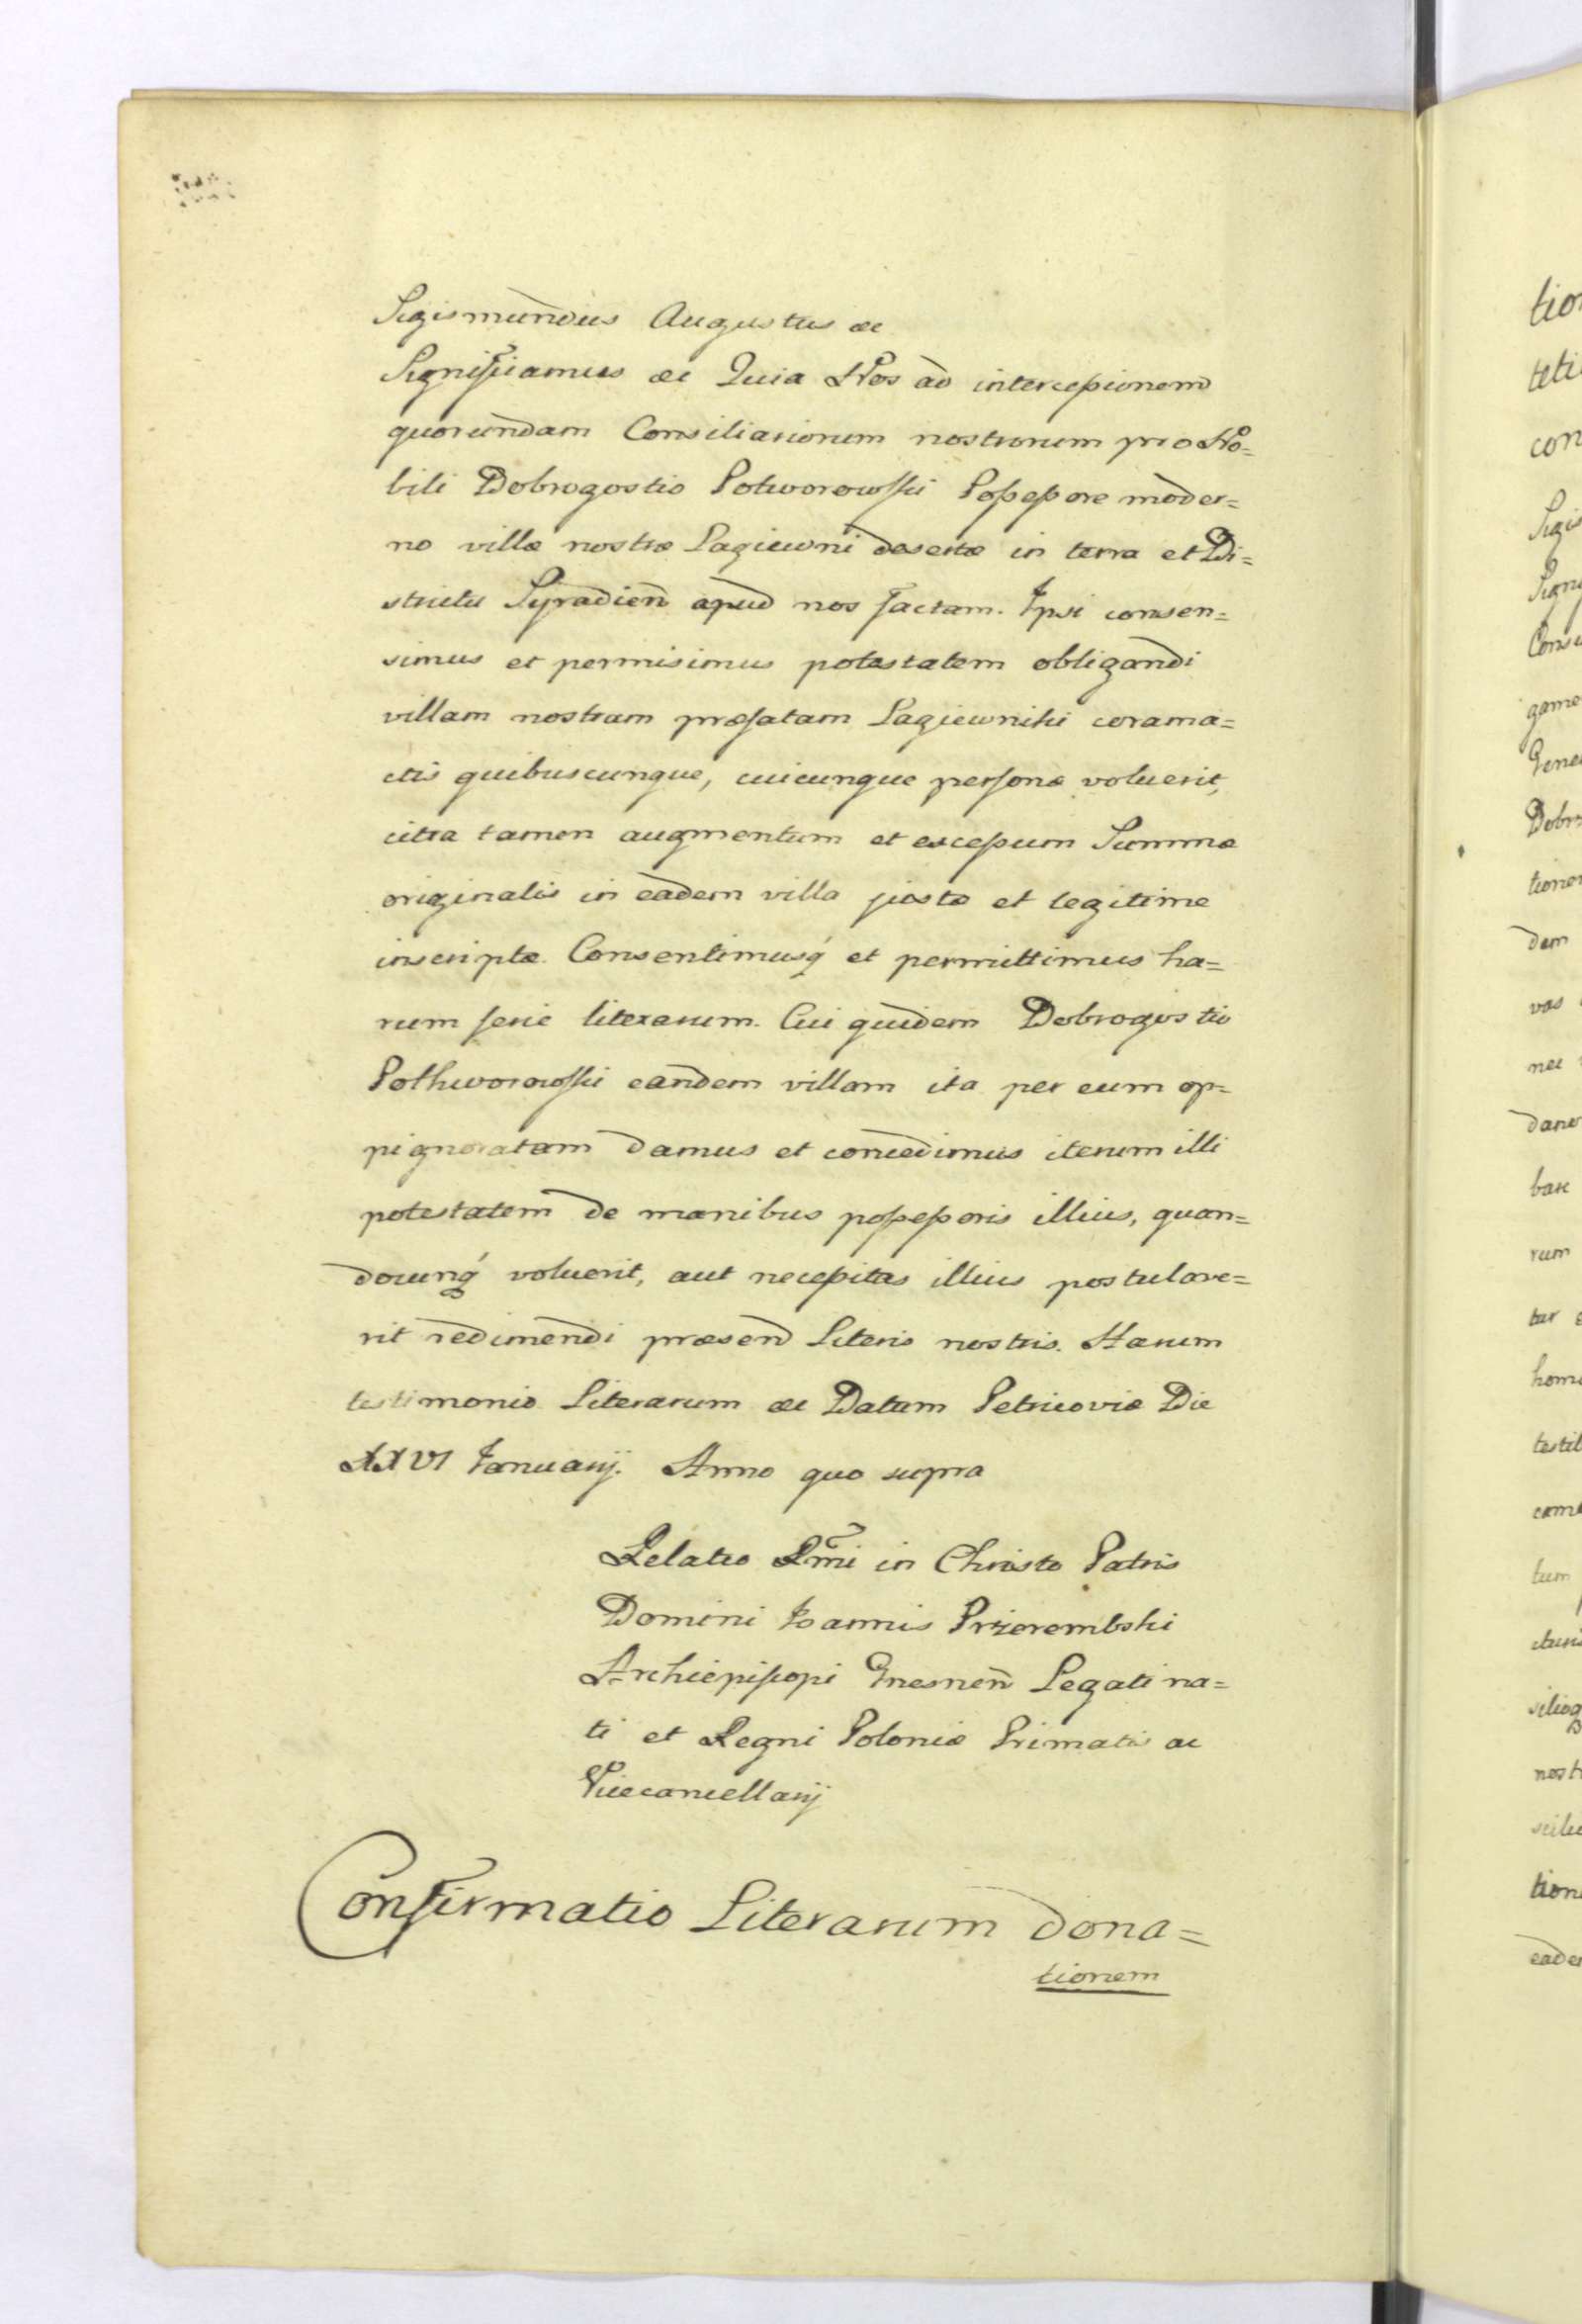 Sigismundus Augustus ac
Significamus ac Quia Nos ad intercessionem
quorundam Consiliariorum nostrorum pro No=
bili Dobrogostio Potworowsski Possessore moder=
no villæ nostræ Lagiewni desertæ in terra et Di=
strictu Syradien apud nos factam. Ipsi consen=
simus et permisimus potestatem obligandi
villam nostram præfatam Lagiewniki corama=
ctis quibuscunque, cuicunque personæ voluerit,
citra tamen augmentum et excessum Summæ
originalis in eadem villa juste et legitime
inscriptæ Consentimusq́ et permittimus ha=
rum serie literarum. Cui quidem Dobrogostio
Pothworowsski eandem villam ita per eum op=
pignoratam damus et concedimus iterum illi
potestatem de manibus possessoris illius, quan=
docunq́ voluerit, aut necessitas illius postulave=
rit redimendi præsend Literis nostris. Harum
testimonio Literarum ac Datum Petricoviæ Die
XXVI Januarij. Anno quo supra
Relatio Rm̃i in Christo Patris
Domini Joannis Przerembski
Archiepiscopi Gnesnen̄ Legati na=
ti et Regni Poloniæ Primatis ac
Vicecancellarij
Confirmatio Literarum dona=
tionem